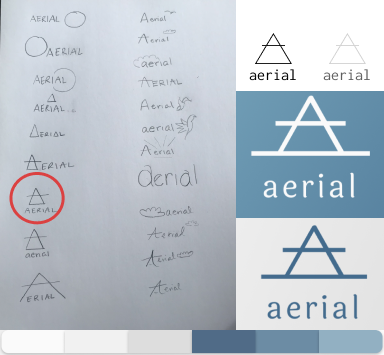 AERIAL
AERIAL
AERIAL
AERIAL
AERIAL
AERIAL
AERIAL
aerial
ERIAL
Aerial
Aerial
aerial
AERIAL
Aerial
aerial
Aerial
aerial
aerial
Aerial
Aerial
Aerial
aerial
aerial
aerial
aerial